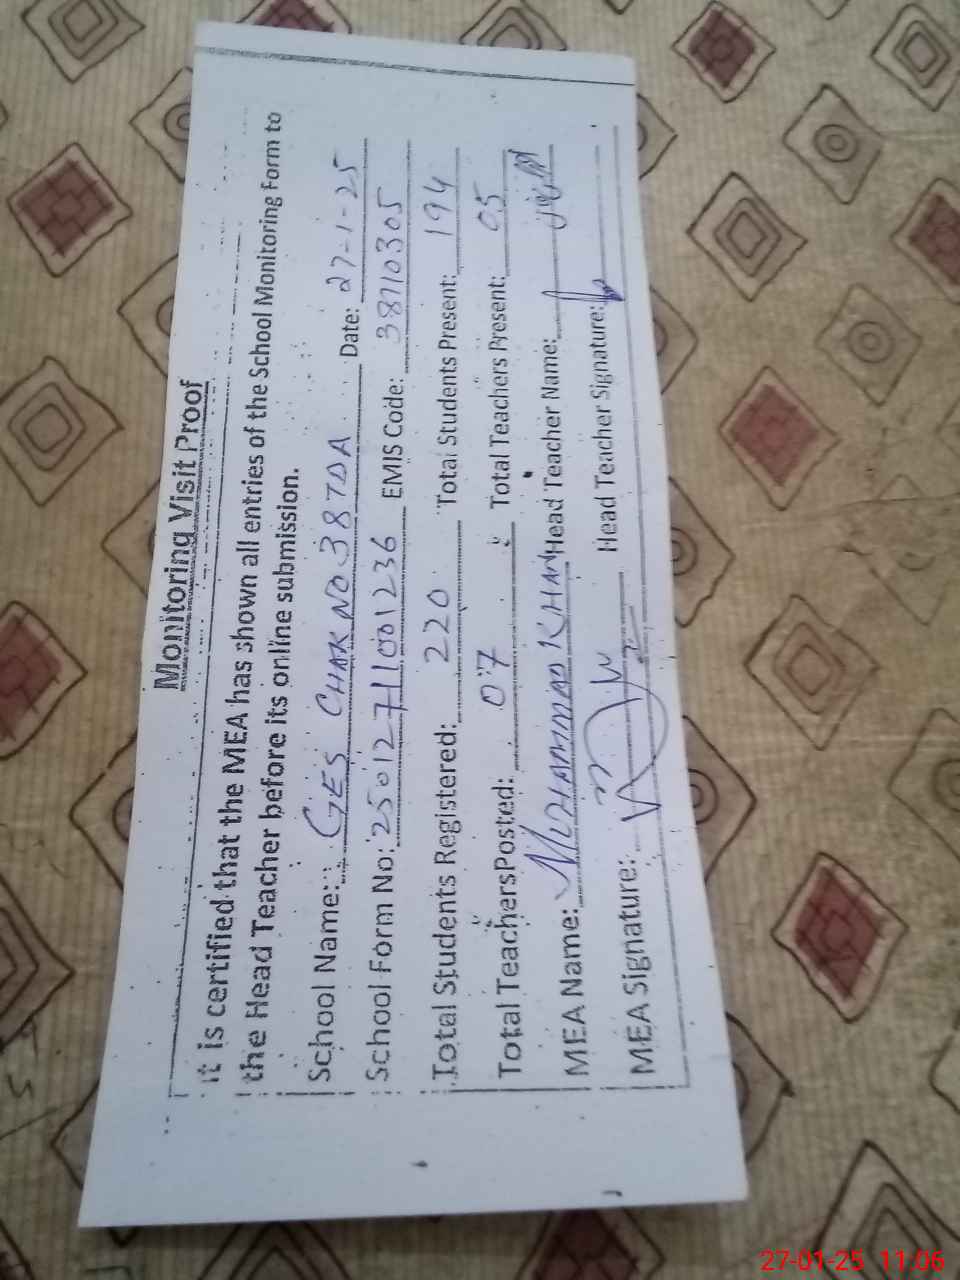 Monitoring Visit Proof
it is certified that the MEA has shown all entries of the School Monitoring Form to
the Head Teacher before its online submission.
School Name: GES CHAK NO 38TDA Date: 27-1-25
School Form No: 25012711001236 EMIS Code: 38710305
Total Students Registered: 220 Total Students Present: 194
Total Teachers Posted: 07 Total Teachers Present: 05
MEA Name: MUHAMMAD KHAN Head Teacher Name:
MEA Signature: Head Teacher Signature:
27-01-25 11:06